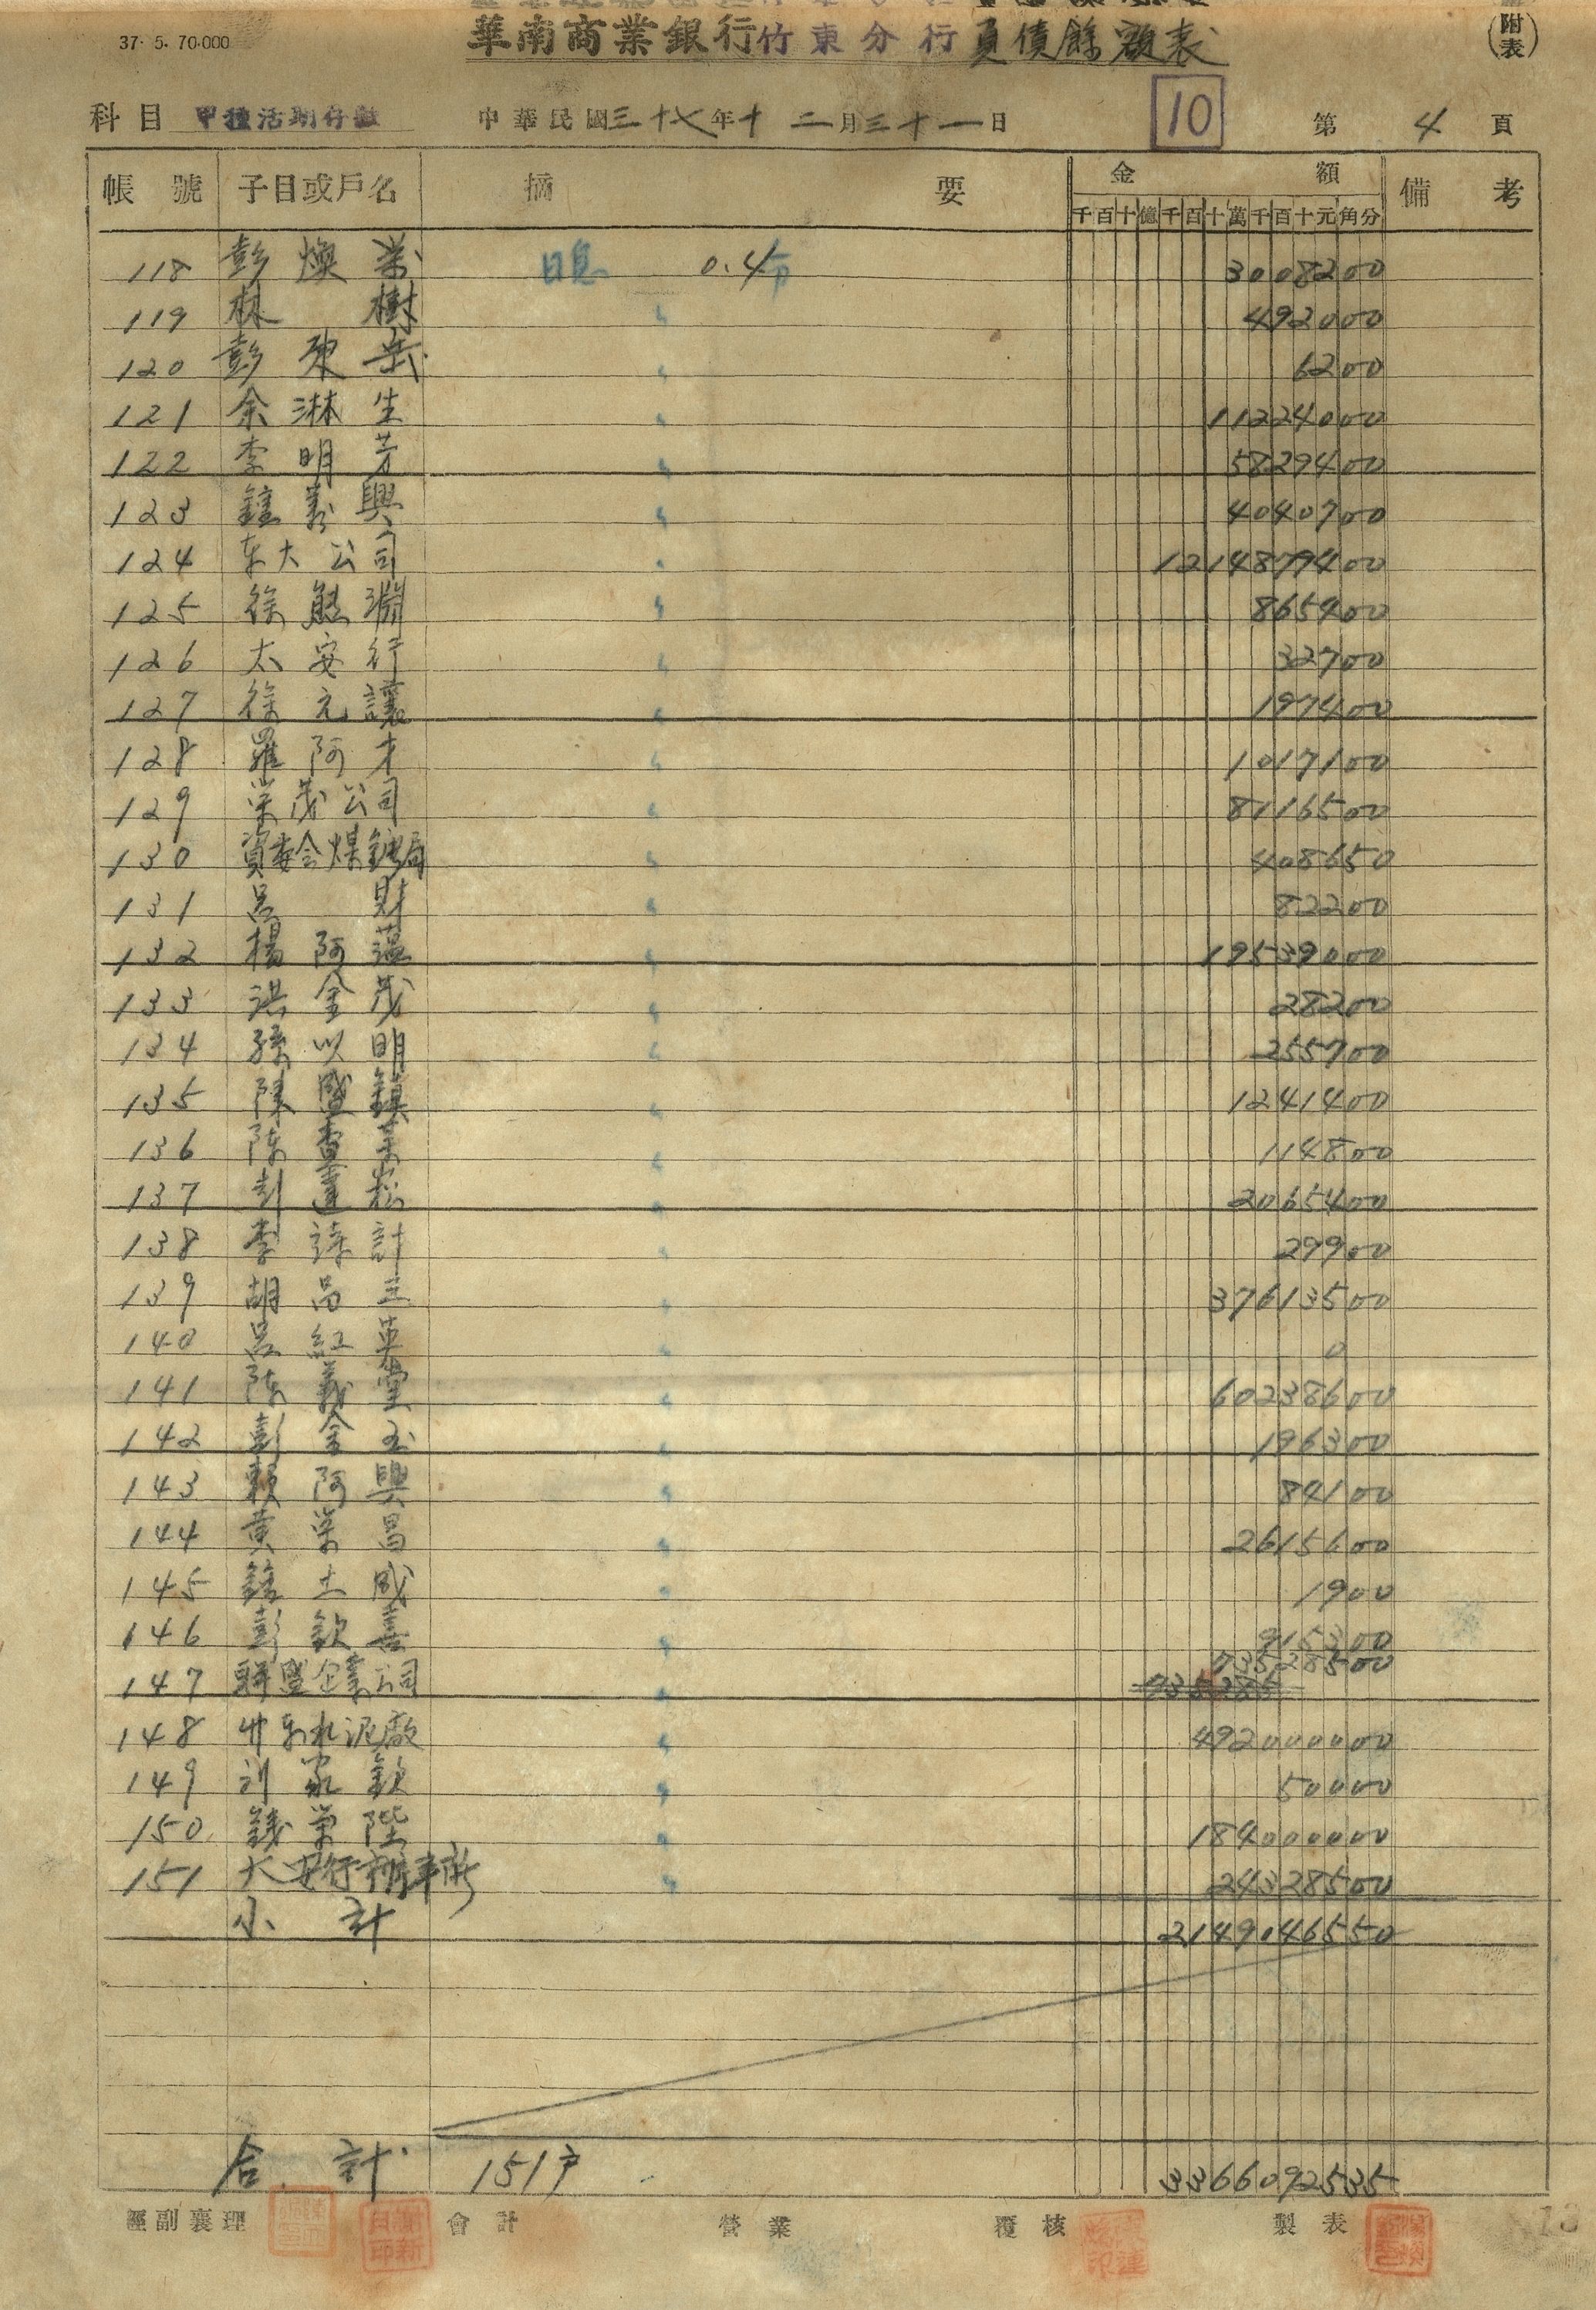 37. 5. 70.000
華南商業銀行竹東分行負債餘額表
(附表)
科目 甲種活期存款 中華民國三十七年十二月三十一日 10 第 4 頁
帳號 子目或戶名 摘要 金額 備考
千百十億千百十萬千百十元角分
118 彭煥 日息 0.4分 3008200
119 林樹 〃 492000
120 彭東岳 〃 6200
121 余淋生 〃 11224000
122 李明芳 〃 5829400
123 興 〃 4040700
124 东大公司 〃 1214879400
125 徐熊淵 〃 865400
126 太安行 〃 32700
127 徐元讓 〃 197400
128 羅阿才 〃 1017100
129 栄茂公司 〃 8116500
130 資委会煤鑛局 〃 408650
131 呂財 〃 82200
132 楊阿 〃 19539000
133 洪金茂 〃 28200
134 孫以明 〃 255700
135 陳盛鎮 〃 1241400
136 陈 〃 114800
137 彭蓬松 〃 2065400
138 李計 〃 29900
139 胡品三 〃 37613500
140 呂紅英 〃 0
141 陈義堂 〃 60238600
142 彭金玉 〃 196300
143 賴阿興 〃 84100
144 黄栄昌 〃 2615600
145 土成 〃 1900
146 彭欽喜 〃 915300
147 聯盟企業公司 〃 73528500
735285
148 竹东水泥廠 〃 492000000
149 刘家欽 〃 50000
150 錢栄陛 〃 184000000
151 大安行辦事所 〃 24328500
小計 2149046550
合計 151戶 3366092535
經副襄理 會計 營業 覆核 製表